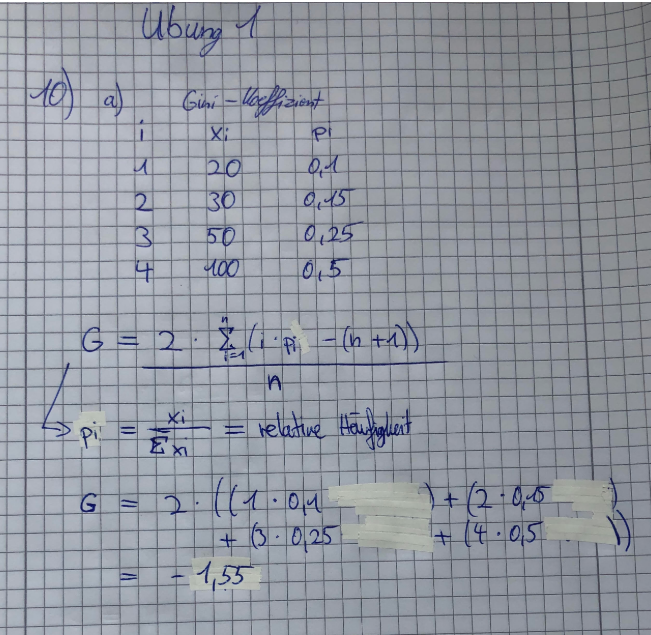 Übung 1
10) a) Gini-Koeffizient
i xi pi
1 20 0,1
2 30 0,15
3 50 0,25
4 100 0,5
G = 2 · n Σ i=1 (i · pi - (n+1))
n
pi = xi / Σ xi = relative Häufigkeit
G = 2 · ((1 · 0,1 ) + (2 · 0,15 )
+ (3 · 0,25 + (4 · 0,5 ))
= - 1,55